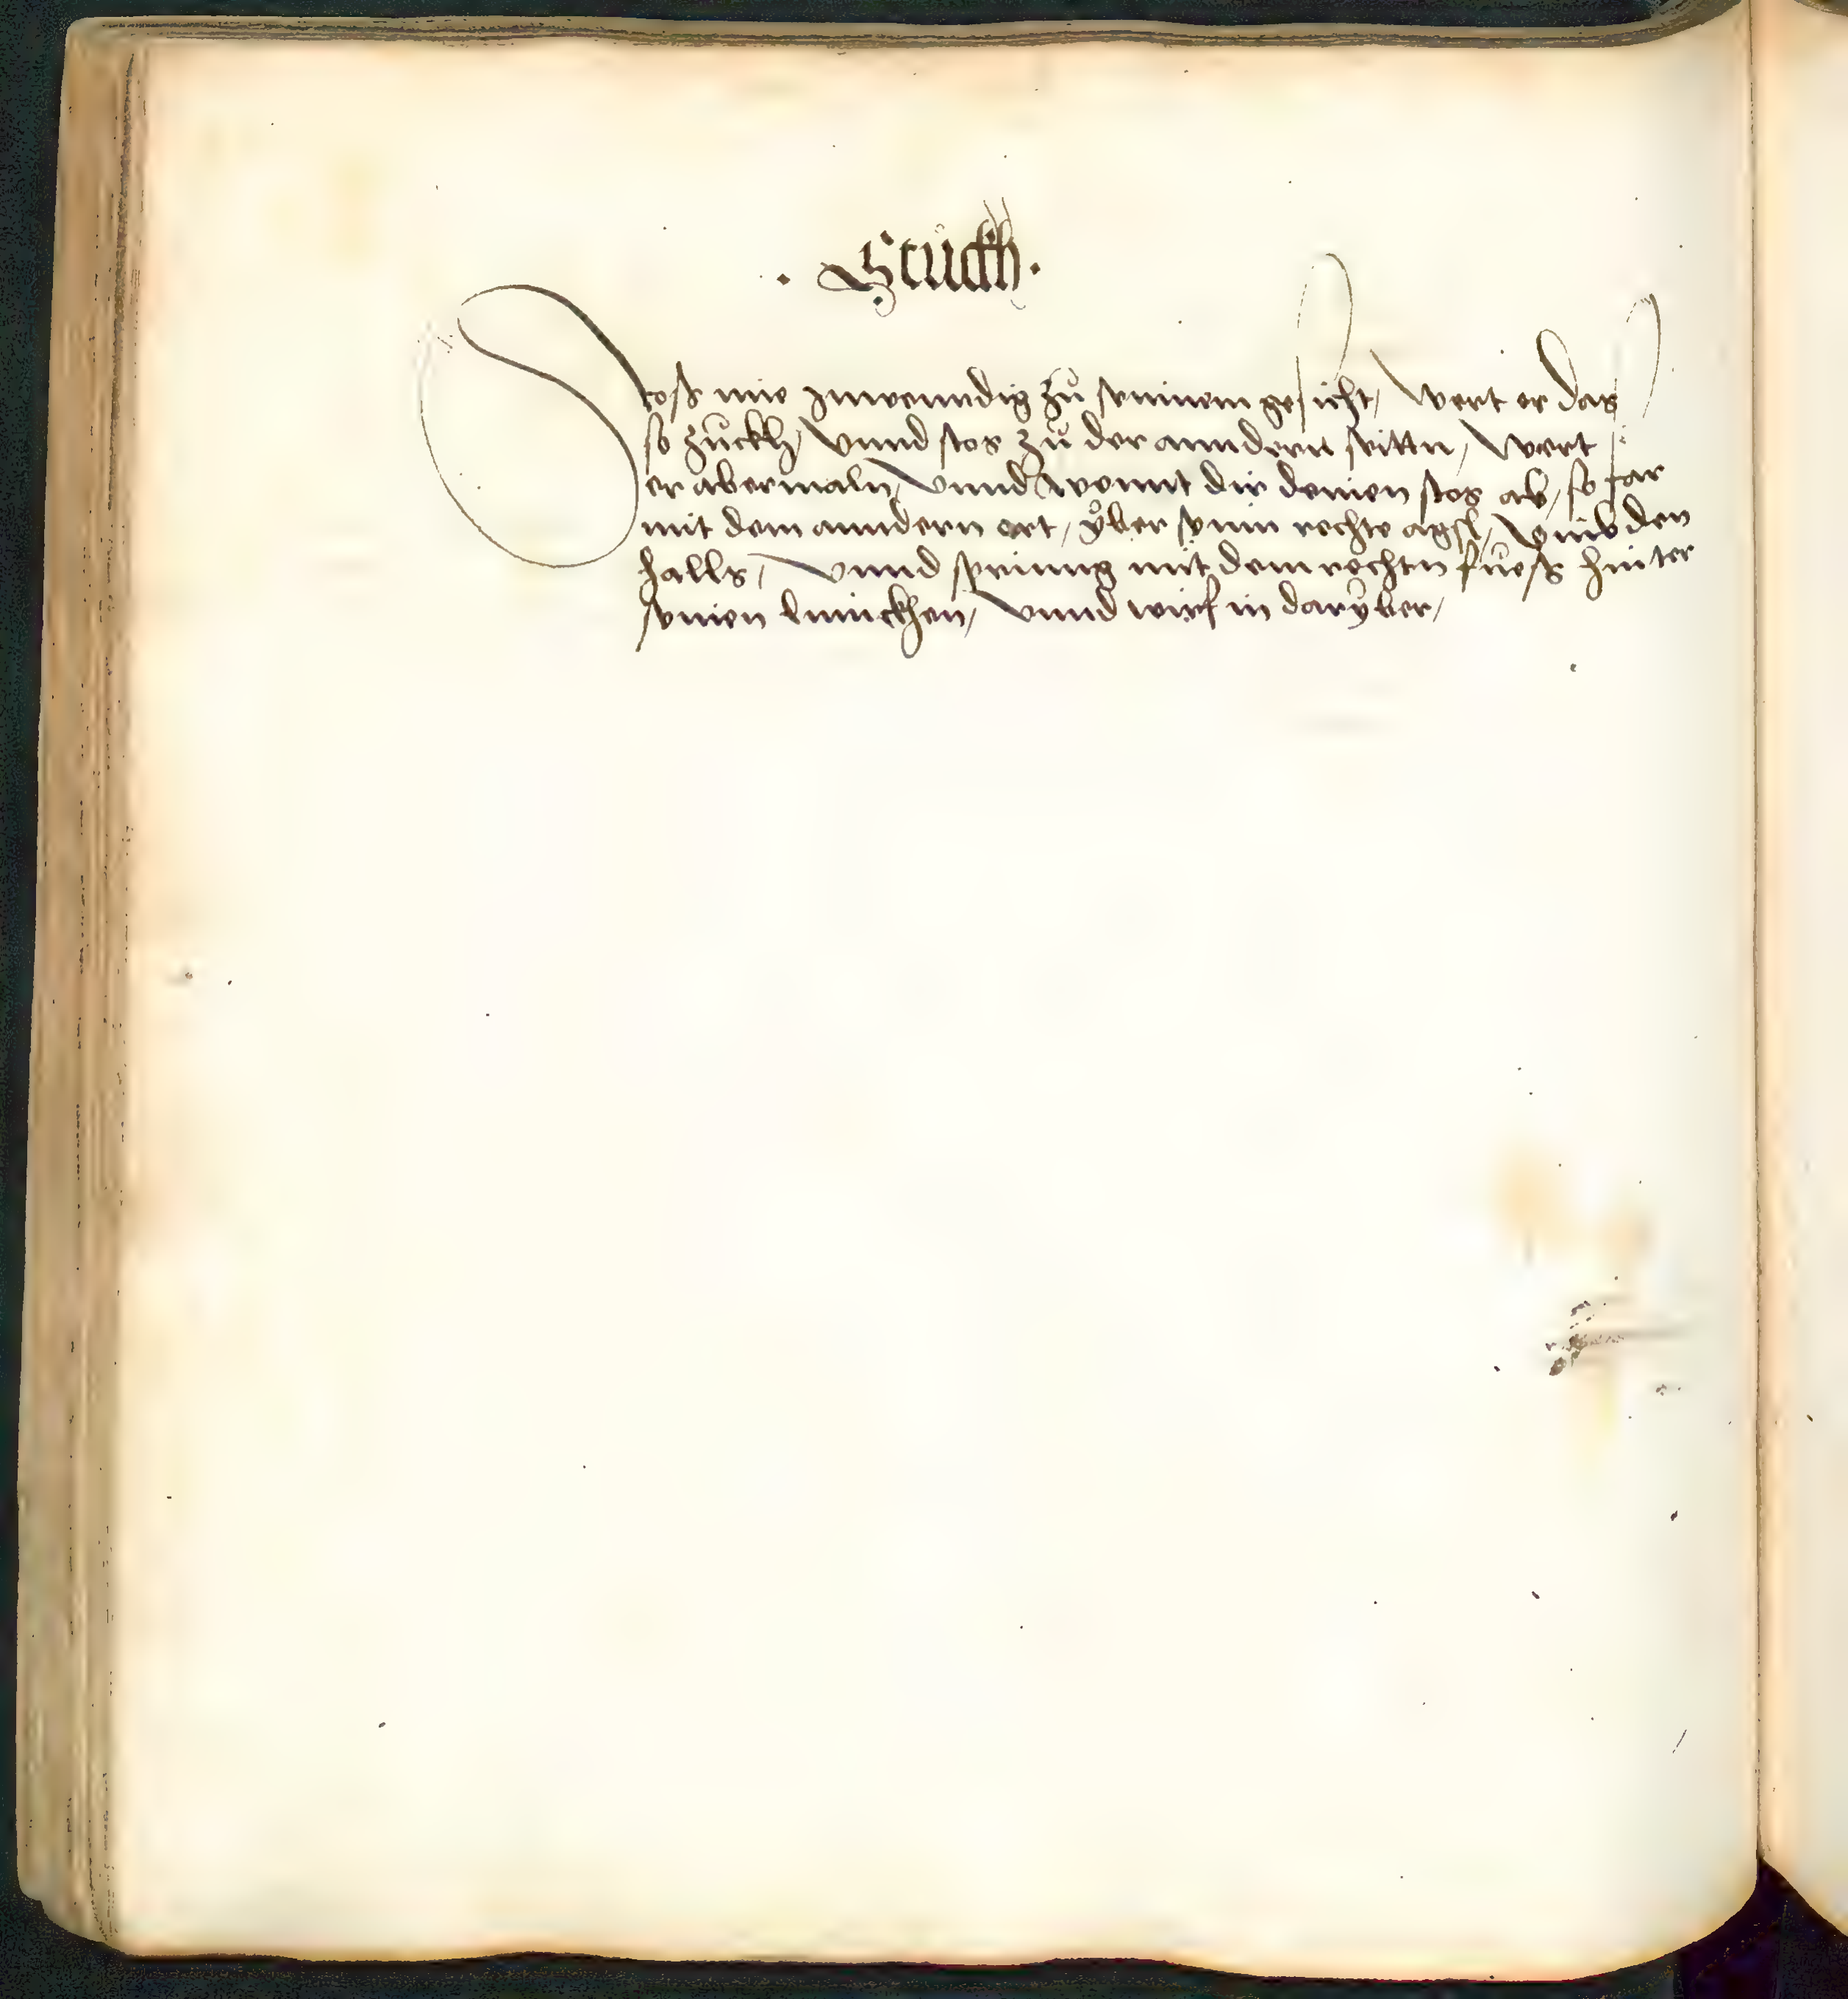 . Stuckh .
Stoß nie inwenndig zů seinem gesicht / Wert er das
so zuckh / Vnnd stos zů der anndern seittn / Wert
er abermaln / Vnnd wennt dir deinen stos ab / so far
mit dem anndern ort / yber sein rechte agsl / Vmb den
halls / Vnnd spring mit dem rechtn fuess hinter
seinen linnckhen / Vnnd wirf in daryber /